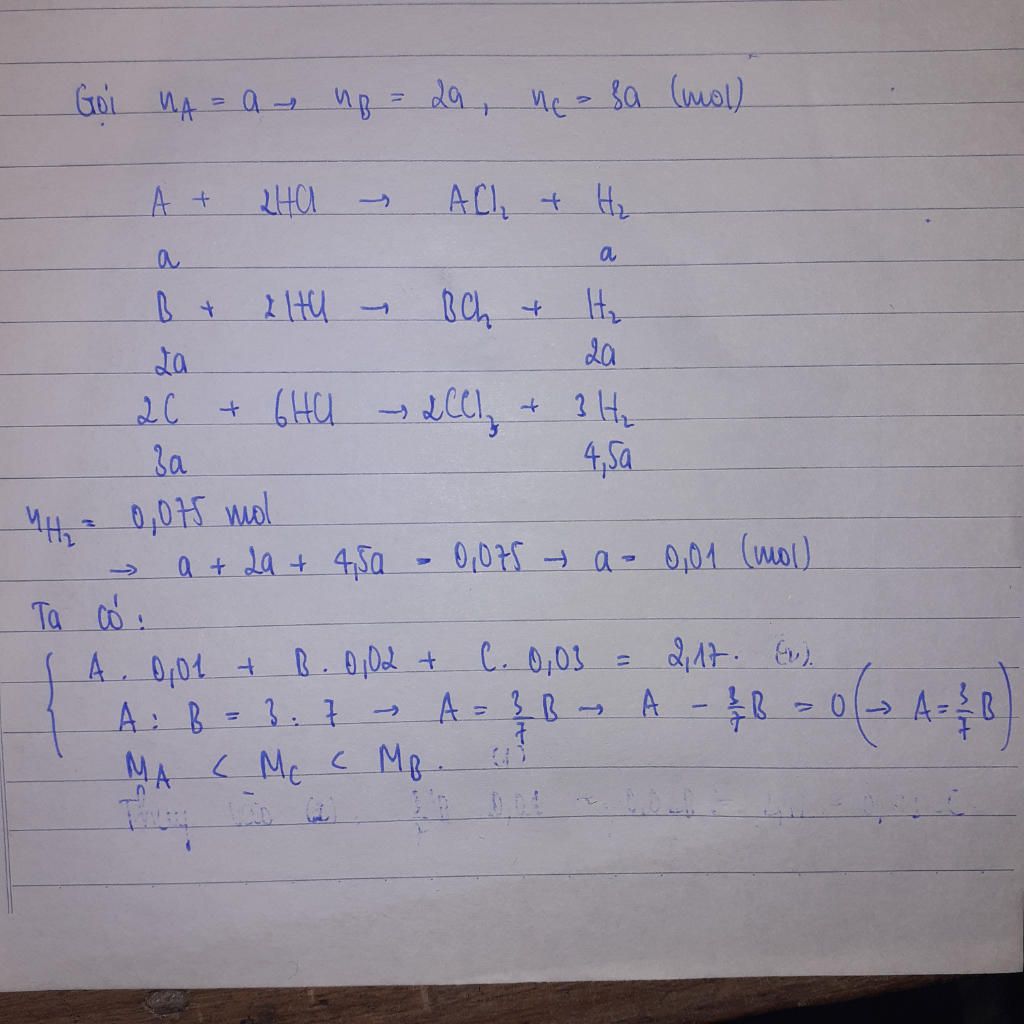 Gọi nA = a → nB = 2a, nC = 3a (mol)
A + 2HCl → ACl₂ + H₂
a a
B + 2HCl → BCl₂ + H₂
2a 2a
2C + 6HCl → 2CCl₃ + 3H₂
3a 4,5a
nH₂ = 0,075 mol
→ a + 2a + 4,5a = 0,075 → a = 0,01 (mol)
Ta có:
A . 0,01 + B . 0,02 + C . 0,03 = 2,17.
A : B = 3 : 7 → A = 3/7 B → A - 3/7 B = 0 (→ A = 3/7 B)
MA < MC < MB.